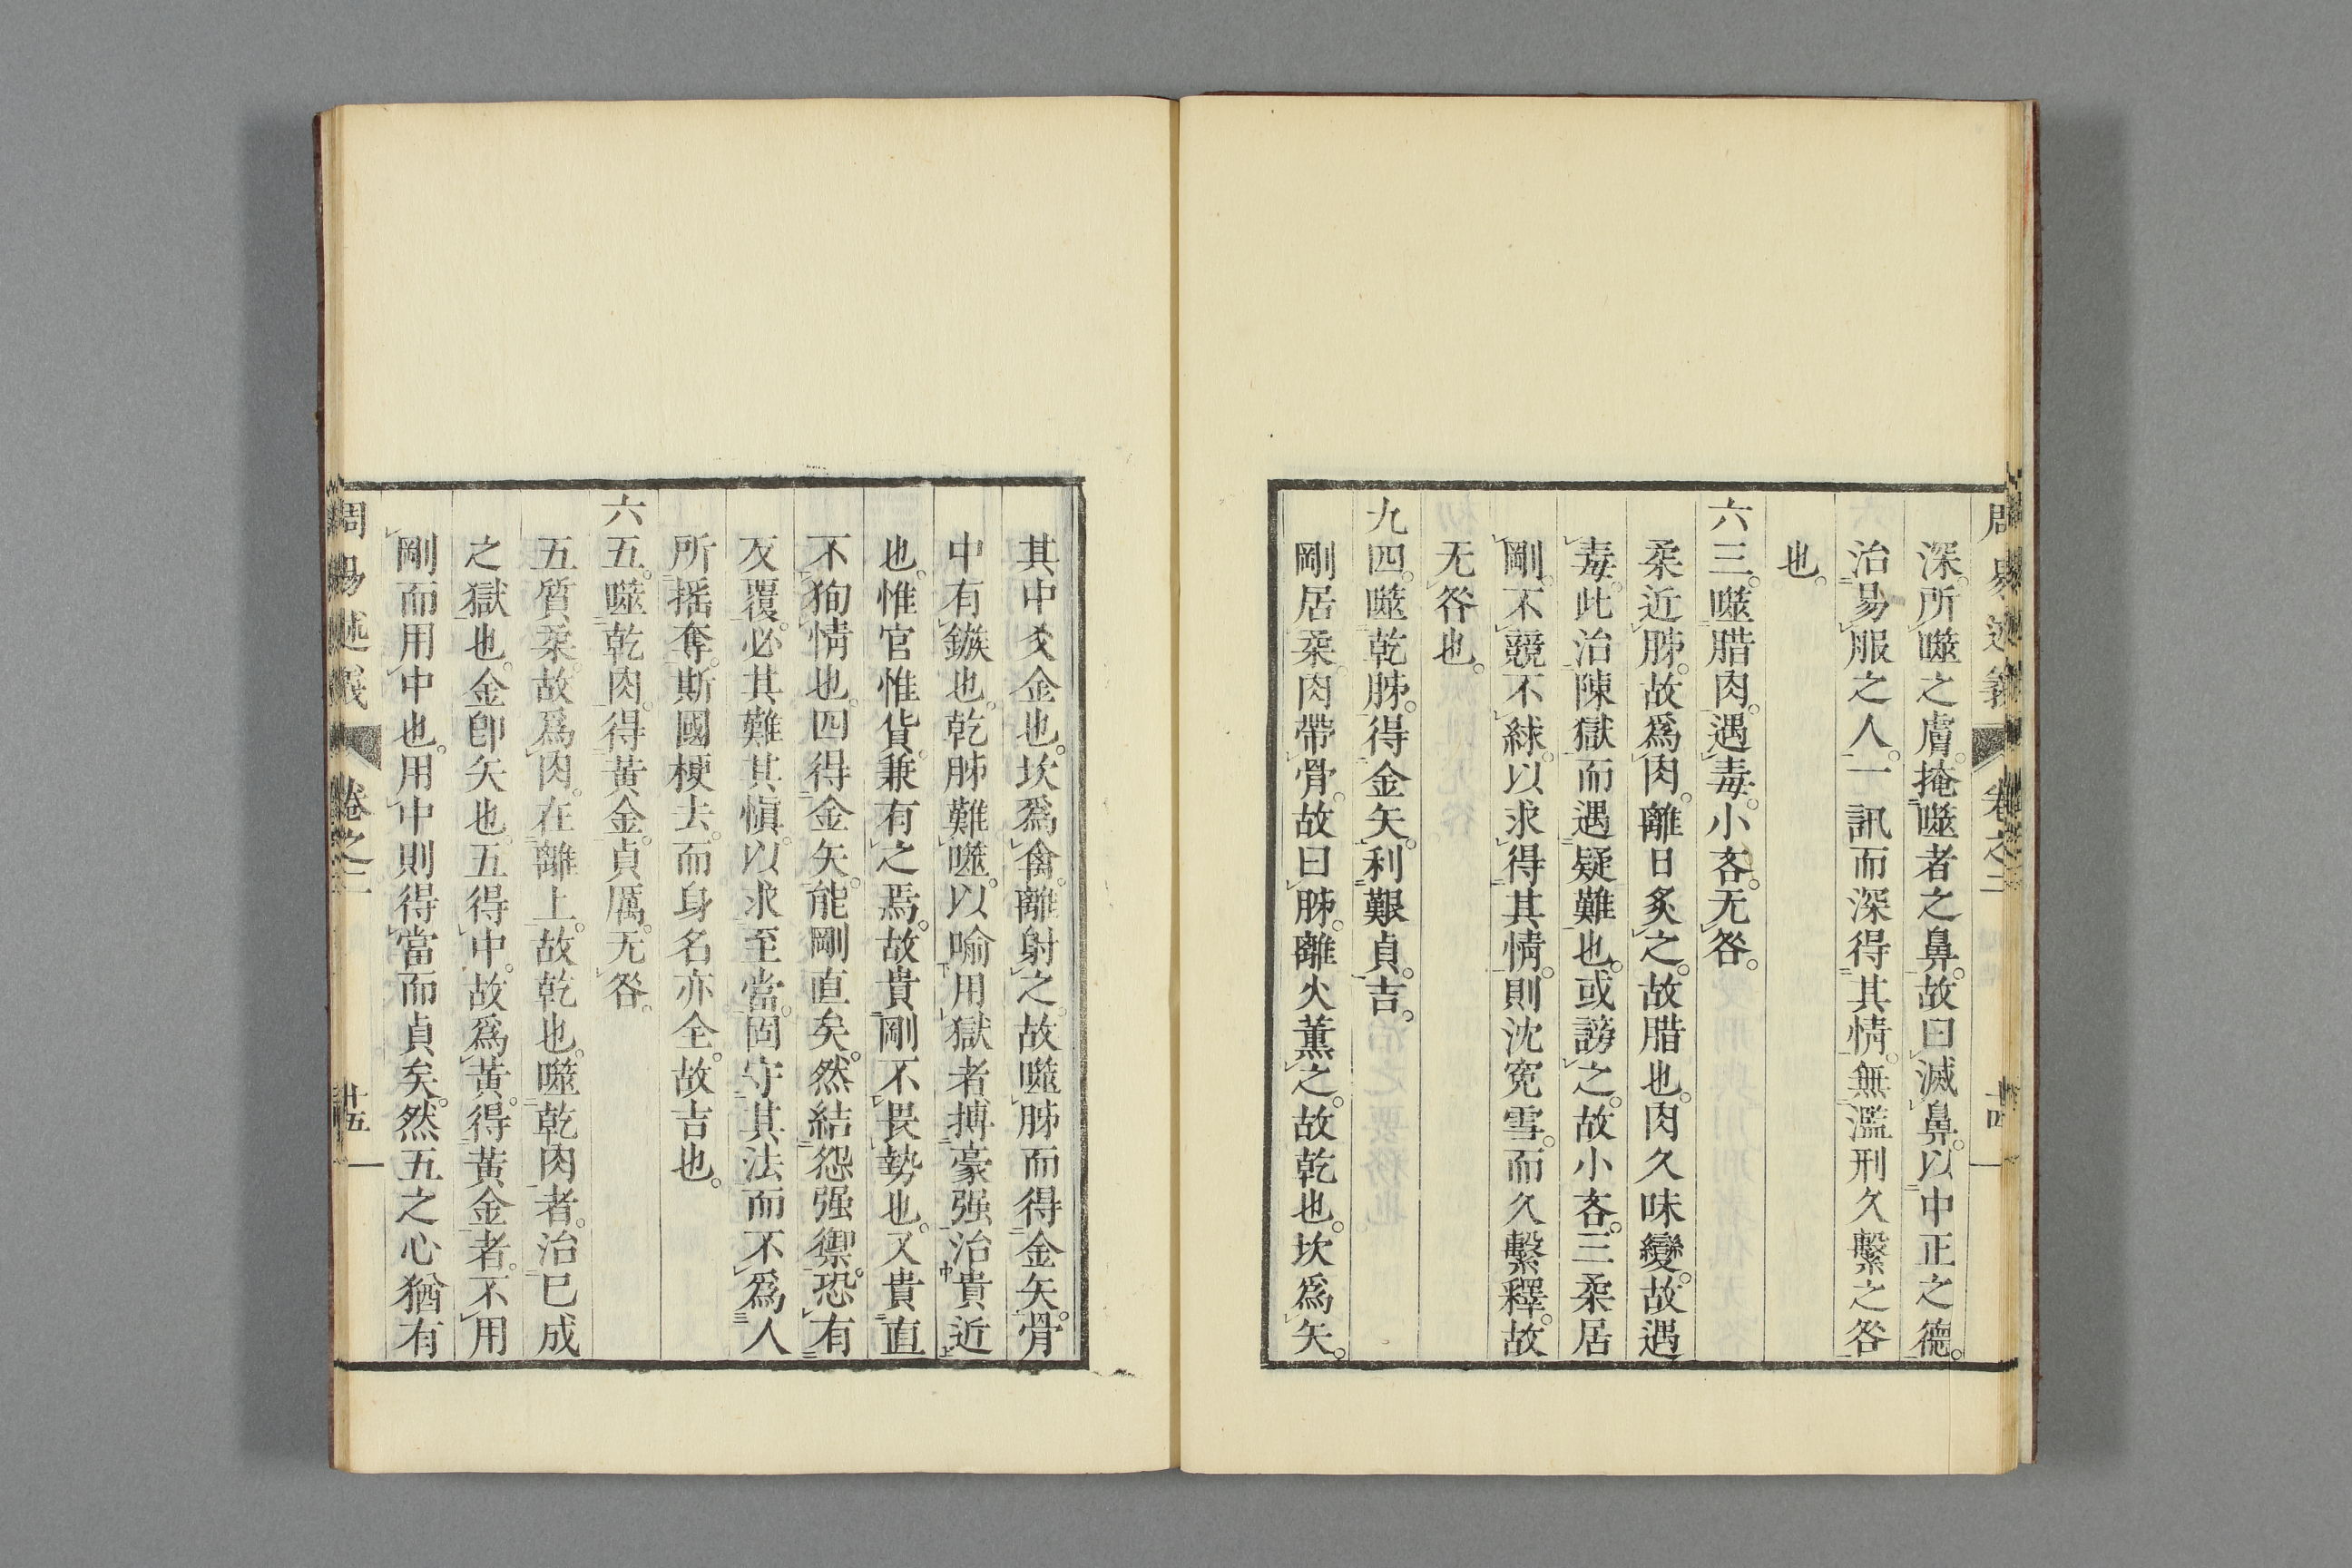 周易述義 卷之二 十四
深。所噬之膚。掩噬者之鼻。故曰滅鼻。以中正之德。
治易服之人。一訊而深得其情。無濫刑久繫之咎
也。
六三。噬腊肉。遇毒。小吝。无咎。
柔近胏。故爲肉。離日炙之。故腊也。肉久味變。故遇
毒。此治陳獄而遇疑難也。或謗之。故小吝。三柔居
剛。不競不絿。以求得其情。則沈寃雪。而久繫釋。故
无咎也。
九四。噬乾胏。得金矢。利艱貞。吉。
剛居柔。肉帶骨。故曰胏。離火薰之。故乾也。坎爲矢。
其中爻金也。坎爲禽。離射之。故噬胏而得金矢。骨
中有鏃也。乾胏難噬。以喻用獄者搏豪强治貴近
也。惟官惟貨。兼有之焉。故貴剛不畏勢也。又貴直
不狥情也。四得金矢。能剛直矣。然結怨强禦。恐有
反覆。必其難其愼。以求至當。固守其法而不爲人
所摇奪。斯國梗去。而身名亦全。故吉也。
六五。噬乾肉。得黃金。貞厲。无咎。
五質柔。故爲肉。在離上。故乾也。噬乾肉者。治巳成
之獄也。金卽矢也。五得中。故爲黃。得黃金者。不用
剛而用中也。用中則得當而貞矣。然五之心猶有
周易述義 卷之二 十五